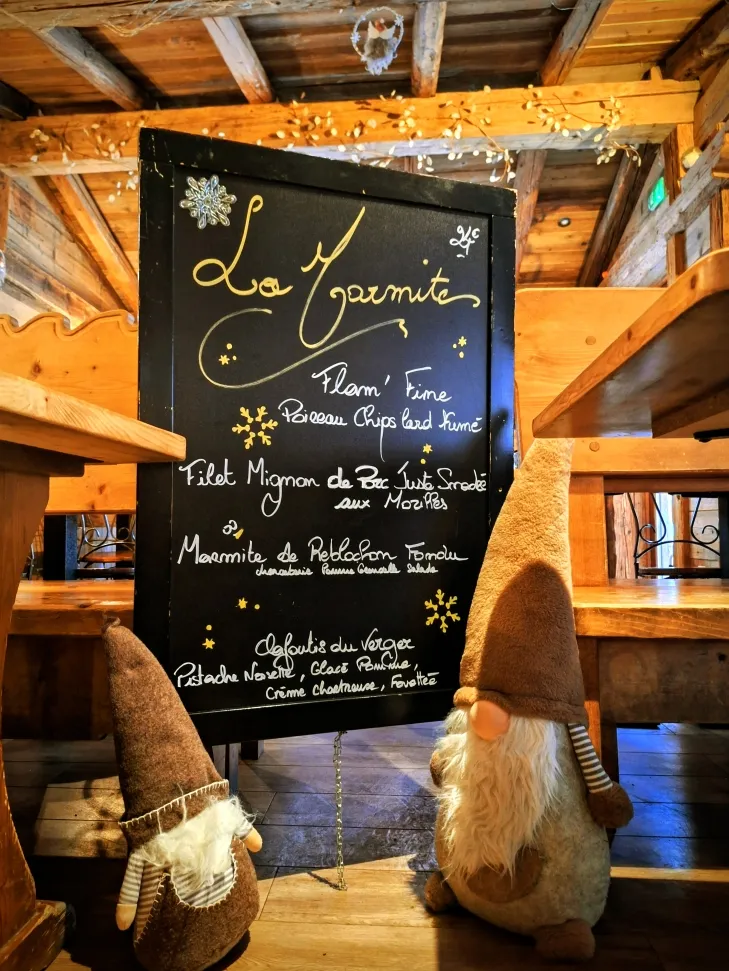 La Marmite
Flam' Fine
Poireau Chips lard fumé
Filet Mignon de Porc Juste Snacké
aux Morilles
ou
Marmite de Reblochon Fondu
charcuterie Pomme Grenaille Salade
Clafoutis du Verger
Pistache Noisette, Glace Pomme,
Crème chartreuse,